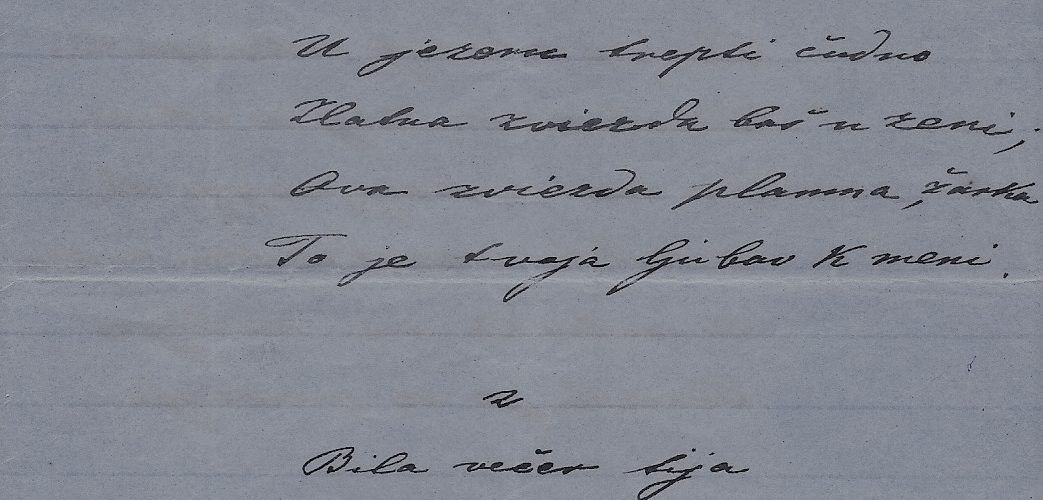 U jezeru trepti čudno
Zlatna zviezda baš u zeni;
Ova zviezda plamna, žarka
To je tvoja ljubav k meni.
2
Bila večer tija